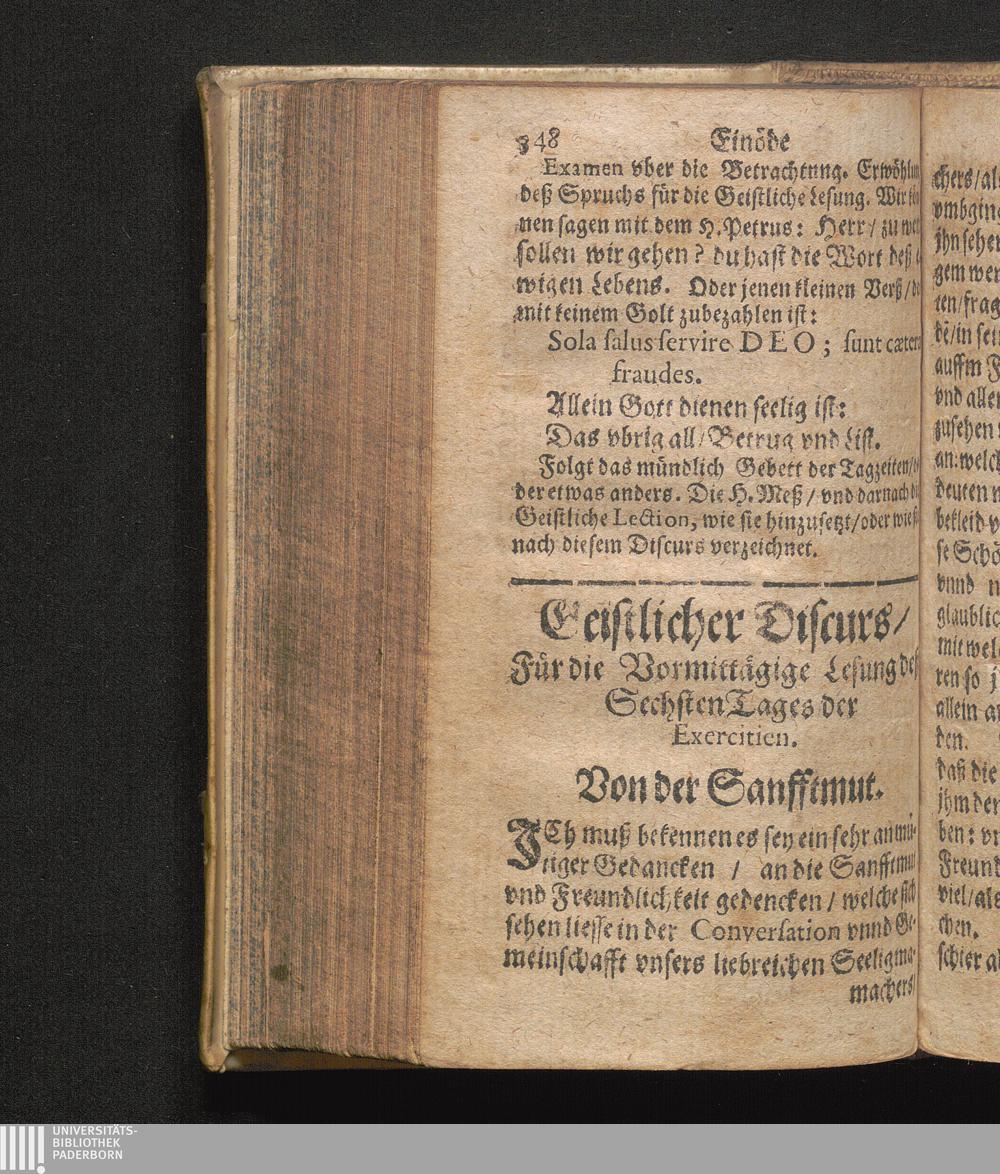 348 Einöde
Examen vber die Betrachtung. Erwöhlun
deß Spruchs für die Geistliche Lesung. Wir
nen sagen mit dem H. Petrus: Herr/ zu
sollen wir gehen? du hast die Wort deß
wigen Lebens. Oder jenen kleinen Verß/
mit keinem Golt zubezahlen ist:
Sola salus servire DEO; sunt cætera
fraudes.
Allein Gott dienen seelig ist:
Das vbrig all/ Betrug vnd List.
Folgt das mündlich Gebett der Tagzeiten/
der etwas anders. Die H. Meß/ vnd darnach
Geistliche Lection, wie sie hinzusetzt/ oder wie
nach diesem Discurs verzeichnet.
Geistlicher Discurs/
Für die Vormittägige Lesung deß
Sechsten Tages der
Exercitien.
Von der Sanfftmut.
ICh muß bekennen es sey ein sehr anmü-
tiger Gedancken / an die Sanfftmut
vnd Freundlichkeit gedencken / welche sich
sehen liesse in der Conversation vnnd Ge-
meinschafft vnsers liebreichen Seeligma-
machers/
chers/ als
vmbgin
ihn sehe
gem wer
ten/ frag
dē/ in sei
auffm F
vnd alle
zusehen
an: welch
deuten
bekleid
se Schö
vnnd
glaublic
mit wel
ren so
allein
den.
daß die
ihm der
ben: vn
Freund
viel/ als
chen.
schier a
UNIVERSITÄTS-
BIBLIOTHEK
PADERBORN